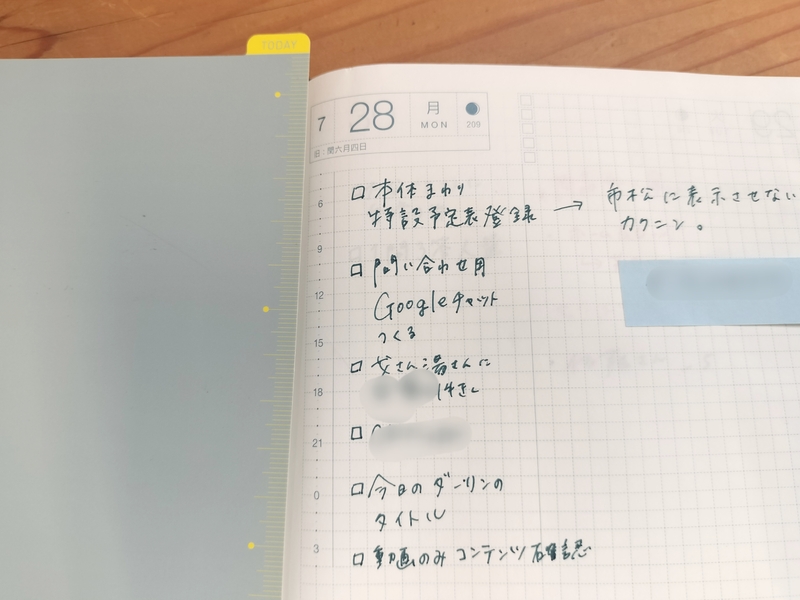 TODAY
7 28 月 MON 209
旧 閏六月四日
6
9
12
15
18
21
0
3
□ 本休まわり
特設予定表登録 → 市松に表示させない
カクニン。
□ 問い合わせ用
Googleチャット
つくる
□ 父さん湯さんに
□
□ 今日のダーリンの
タイトル
□ 動画のみコンテンツ確認